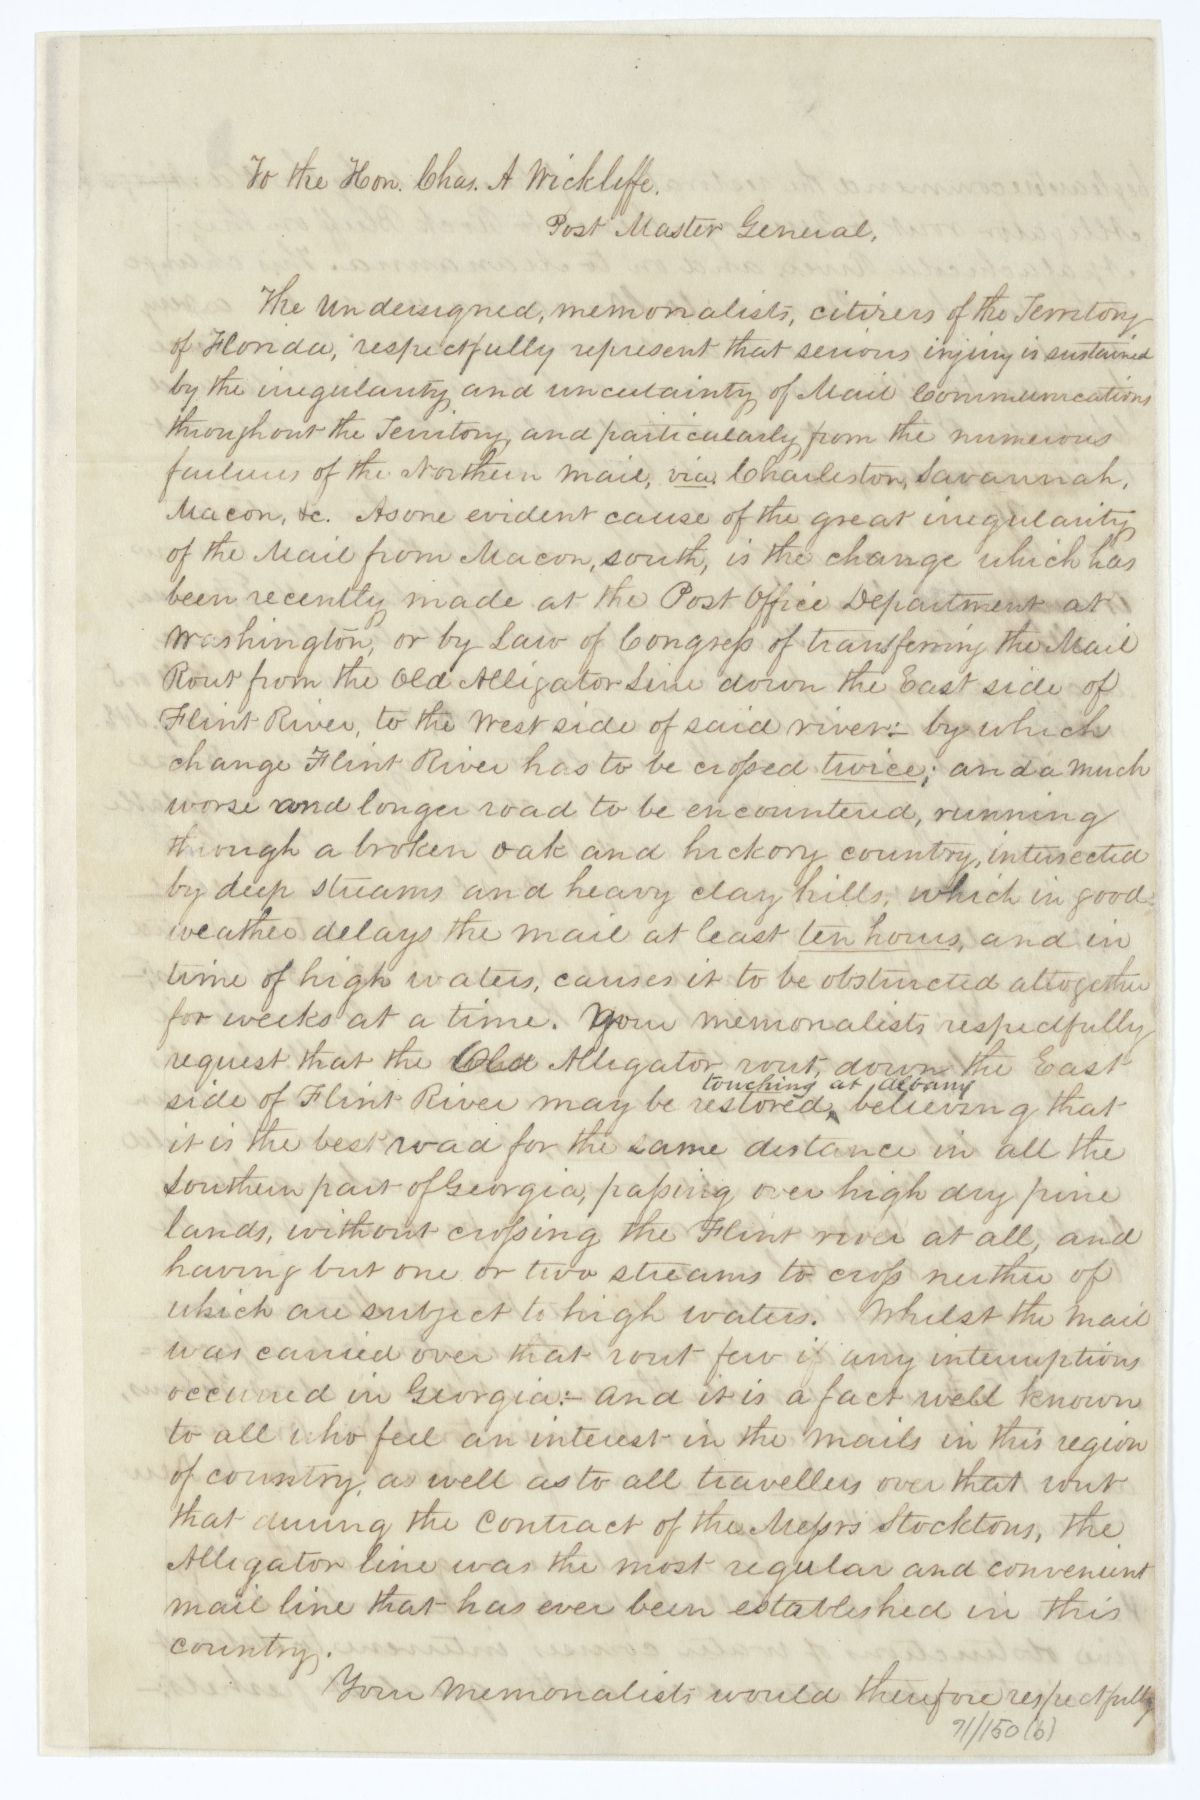 To the Hon. Chas. A Wickliffe.
Post Master General.
The undersigned, memorialists, citizens of the Territory
of Florida, respectfully represent that serious injury is sustained
by the irregularity and uncertainty of Mail Communications
throughout the Territory, and particularly from the numerous
failures of the Northern mail, via. Charleston, Savannah,
Macon, &c. As one evident cause of the great irregularity
of the Mail from Macon, south, is the change which has
been recently made at the Post Office Department at
Washington, or by Law of Congress of transferring the Mail
Rout from the Old Alligator Line down the East side of
Flint River, to the West side of said river:- by which
change Flint River has to be crossed twice; and a much
worse and longer road to be encountered, running
through a broken oak and hickory country, intersected
by deep streams and heavy clay hills, which in good
weather delays the mail at least ten hours, and in
time of high waters, causes it to be obstructed altogether
for weeks at a time. Your memorialists respectfully
request that the Old Alligator rout, down the East
touching at Albany
side of Flint River may be restored, believing that
it is the best road for the same distance in all the
Southern part of Georgia, passing over high dry pine
lands, without crossing the Flint river at all, and
having but one or two streams to cross neither of
which are subject to high waters. Whilst the Mail
was carried over that rout few if any interruptions
occurred in Georgia:- and it is a fact well known
to all who feel an interest in the mails in this region
of country, as well as to all travellers over that rout
that during the contract of the Messrs Stocktons, the
Alligator line was the most regular and convenient
mail line that has ever been established in this
country.
Your memorialists would therefore respectfully
71/150 (6)